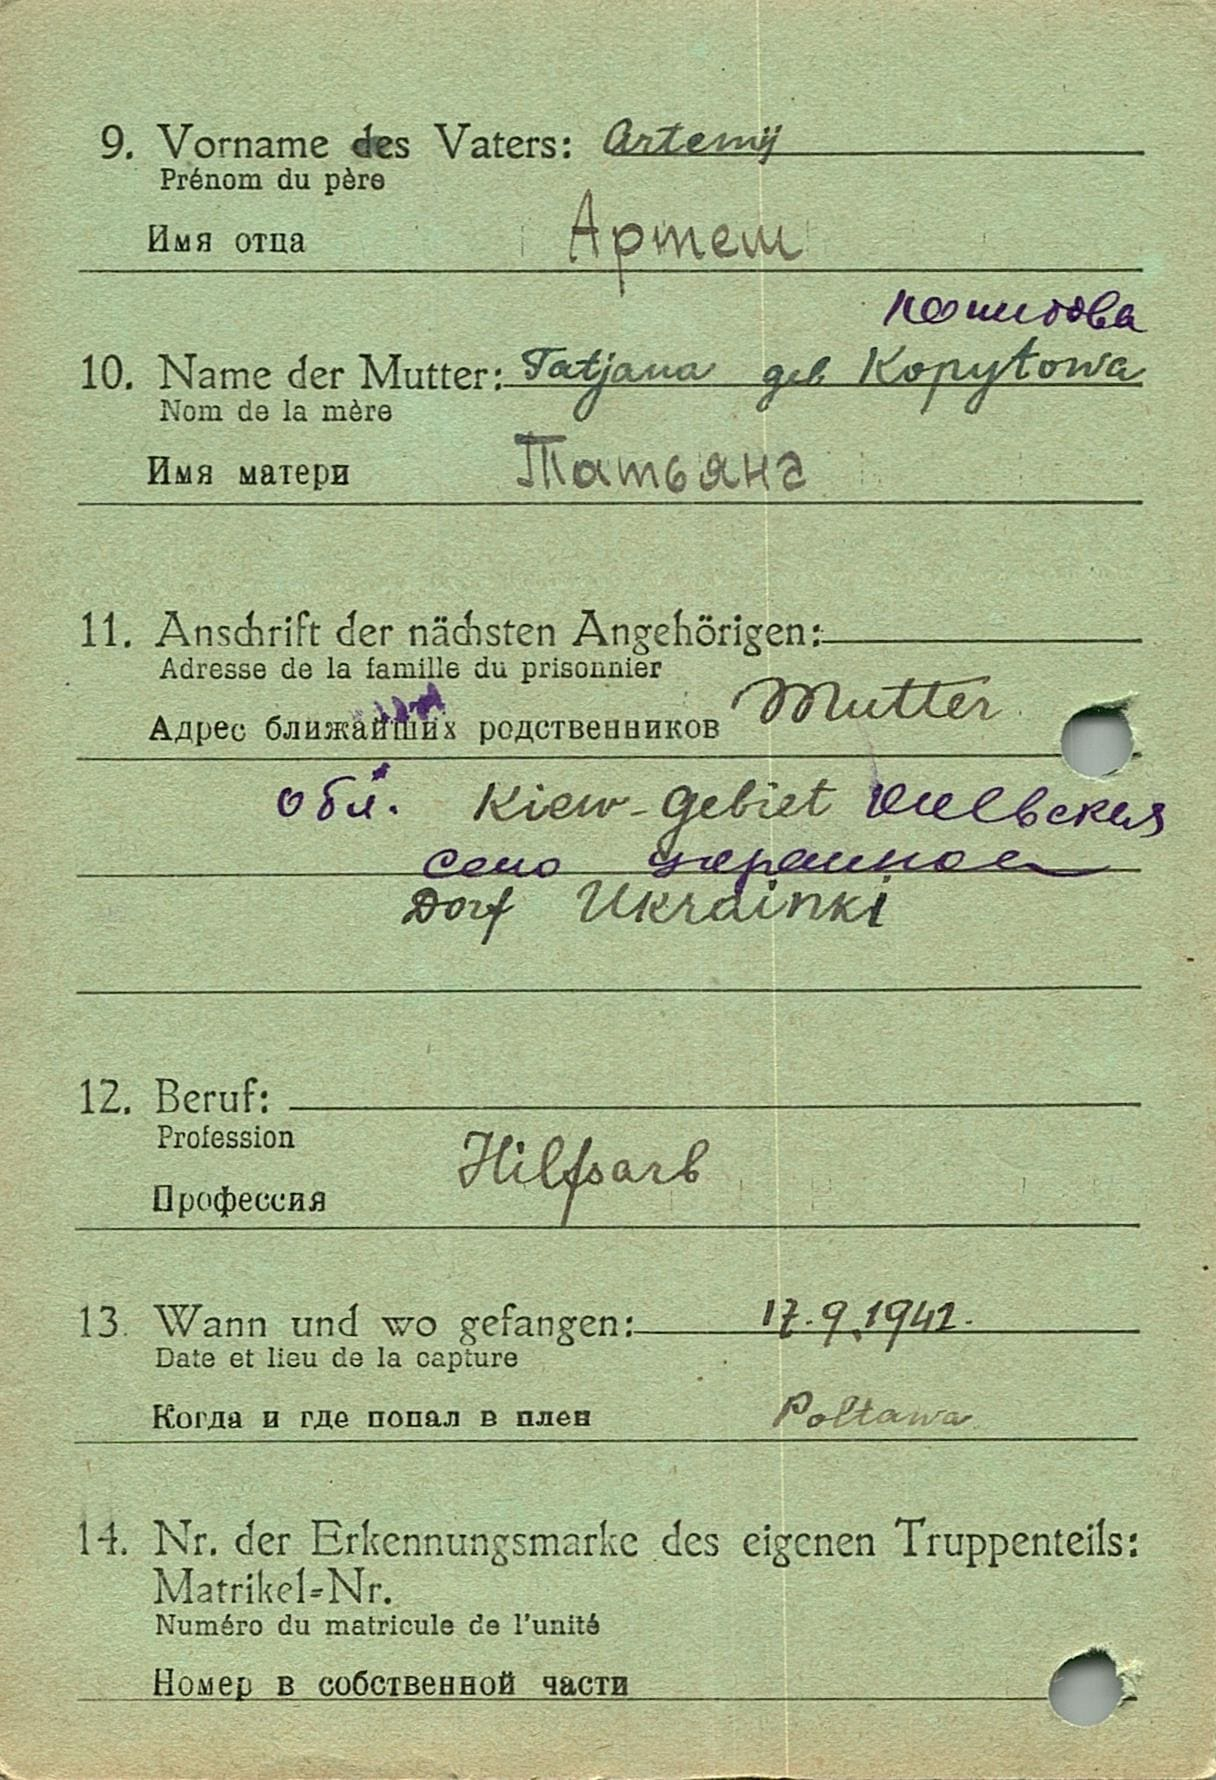 9. Vorname des Vaters: Artemij
Prénom du père
Имя отца Артем
10. Name der Mutter: Tatjana geb Kopytowa
Nom de la mère
Имя матери Татьяна
11. Anschrift der nächsten Angehörigen:
Adresse de la famille du prisonnier
Адрес ближайших родственников Mutter
обл. Kiew-gebiet Киевская
село
Dorf Ukrainki
12. Beruf:
Profession Hilfsarb
Профессия
13. Wann und wo gefangen: 17.9.1941.
Date et lieu de la capture
Когда и где попал в плен Poltawa
14. Nr. der Erkennungsmarke des eigenen Truppenteils:
Matrikel-Nr.
Numéro du matricule de l'unité
Номер в собственной части